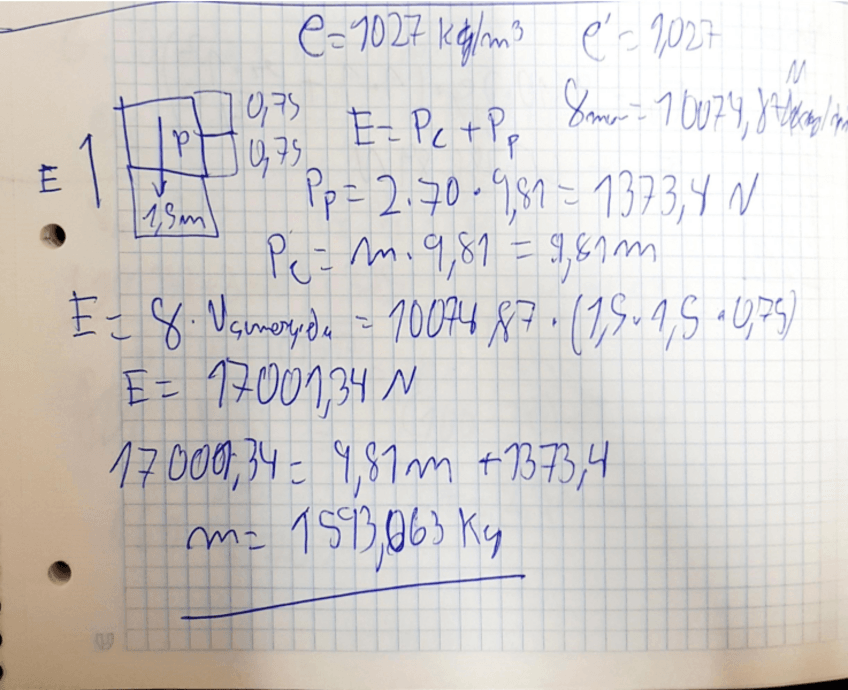 e=1027 kg/m³ e'=1,027
0,75
E 1 P 0,75 E= Pc + Pp
1,5m Pp= 2.70.9,81= 1373,4 N
Pc= m.9,81 = 9,81m
E= 8.Vsumergida = 10074,87.(1,5.1,5.0,75)
E= 17001,34 N
17001,34= 9,81m +1373,4
m= 1593,063 Kg